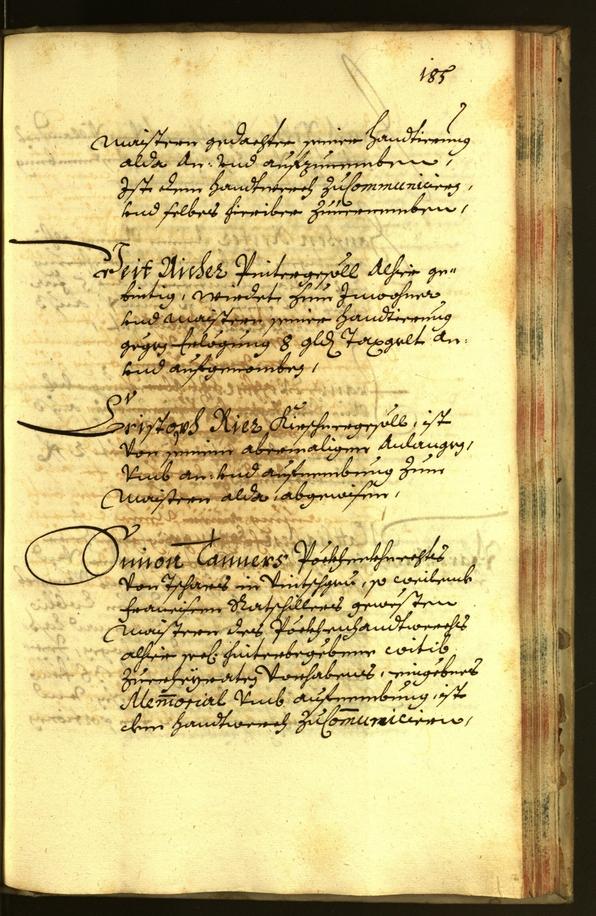 185
maistern gedachter seiner Handtierung
alda An: vnd aufzunemben,
Ist dem Handtwerch zu Communiciern,
vnd selbes hierüber zuuernemben,
Veit Aicher Pintergesöll Alhie ge=
bürtig, würdet zum Inwohner
vnd maistern seiner Handtierung
gegen Erlegung 8 gld Taxgelt An:
vnd aufgenomben,
Cristoph Riez Kirschnergesöll, ist
von seinem abermaligen Anlangen,
vmb an: vnd aufnembung zum
Maistern alda, abgewisen,
Simon Tanners Pöckhenkhnechts
von Tschars in Vintschgeu, so weilend
Francisen Ratschillers gewesten
Maistern des Pöckhenhandtwerchs
alhie sel: hinterlassene witib
zuerheyraten Vorhabens, eingebens
Memorial vmb aufnembung, ist
dem Handtwerch zu Communiciern,